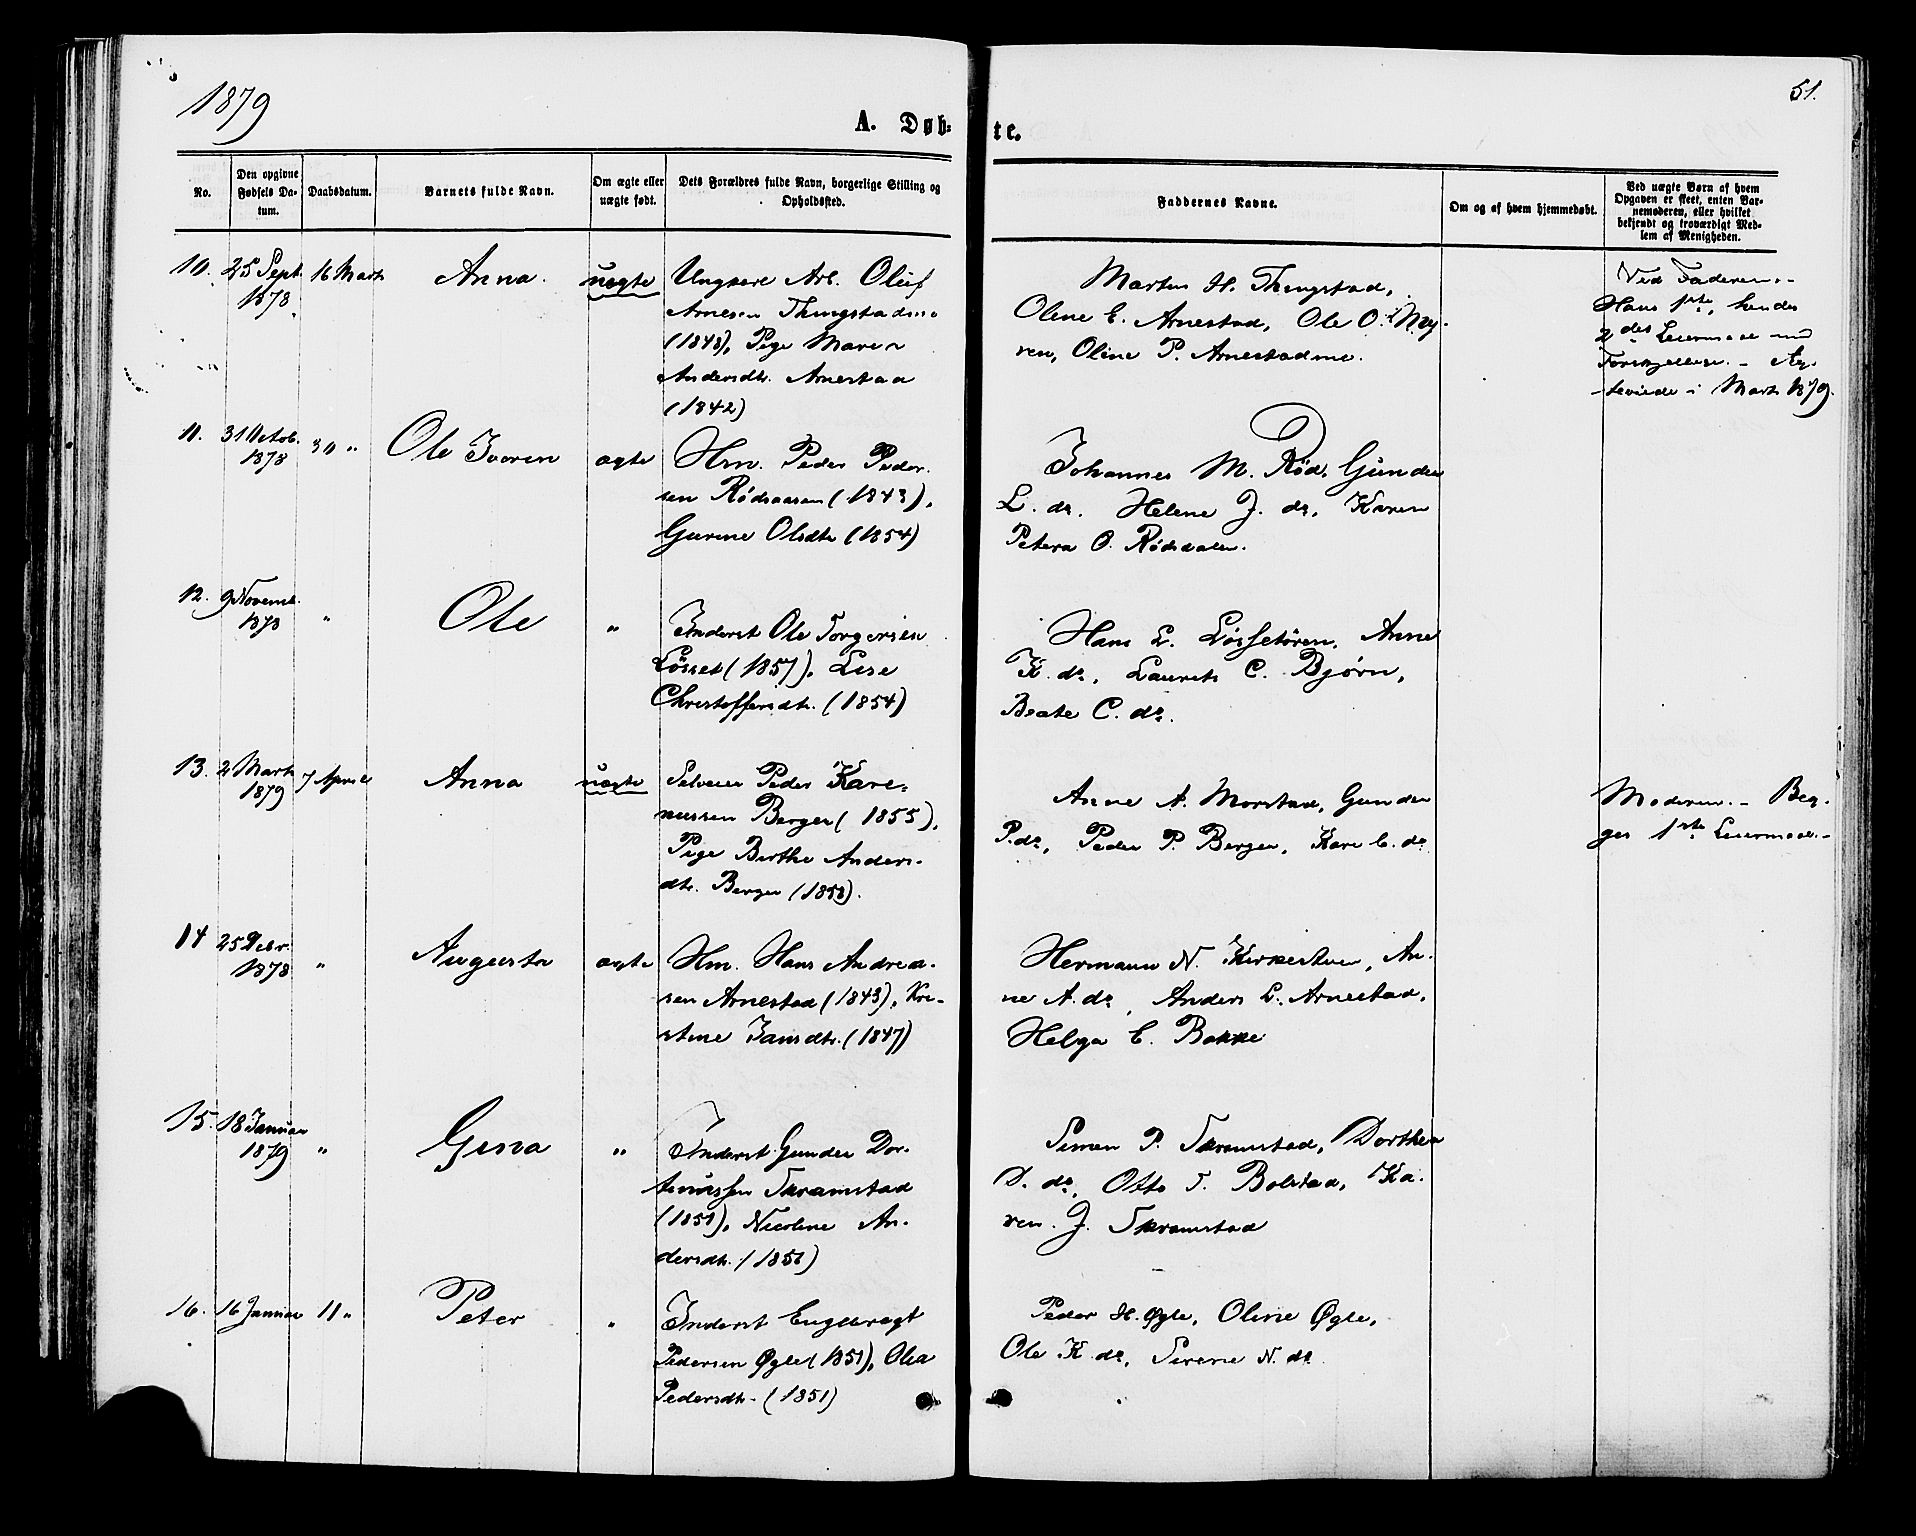 1879
51.
A. Døb-
te.
No.
Den opgivne
Fødsels Da-
tum.
Daabsdatum.
Barnets fulde Navn.
Om ægte eller
uægte født.
Dets Forældres fulde Navn, borgerlige Stilling og
Opholdssted.
Faddernes Navne.
Om og af hvem hjemmedøbt.
Ved uægte Børn af hvem
Opgaven er skeet, enten Bar-
nemoderen, eller hvilket
bekjendt og troværdigt Med-
lem af Menigheden.
10. 25 Sept. 16 Marts Anna. uægte
1878
Ungkarl Arb. Oluf
Arnesen Thingstad
(1848), Pige Maren
Andersdtr. Arnestad
(1842)
Marten H. Thingstad,
Olene E. Arnestad, Ole O. Myh-
ren, Oline P. Arnestad
Ved Faderen.-
Hans 1ste, hendes
2det Leiermaal
- Marts 1879.
11. 31 Octob. 30 " Ole Ivoren ægte
1878
Hm. Peder Peder-
sen Rødsaasen (1843),
Gurine Olsdtr (1854)
Johannes M. Rød, Gunder
L. do. Helene J. do, Karen
Petera O. Rødsdalen.
12. 9 Novemb. " Ole "
1878
Inderst Ole Torgersen
Løsset (1857), Lise
Christoffersdtr. (1854)
Hans L. Løssetøren, Anne
K. do, Laurits C. Bjørn,
Beate C. do.
13. 2 Marts 7 April Anna uægte
1879
Selveier Peder Kare-
nussen Berger (1855),
Pige Berthe Anders-
dtr. Berger (1858).
Anne A. Morstad, Gunder
P. do, Peder P. Berger, Kari C. do
Moderen.- Beg-
ges 1ste Leiermaal-
14 25 Febr. " Augusta ægte
1878
Hm. Hans Andrea-
sen Arnestad (1843), Kri-
stine Jansdtr. (1847)
Hermann N. Kirkestuen, An-
ne A. do, Anders L. Arnestad,
Helga E. Bakke
15. 18 Januar " Gina "
1879
Inderst Gunder Dor-
teniussen Skramstad
(1851), Nicoline An-
dersdtr. (1851)
Simen P. Skramstad, Dorthea
D. do, Otto T. Bolstad, Ka-
ren J. Skramstad
16. 16 Januar 11 " Peter "
Inderst Engebregt
Pedersen Øgle (1851), Olea
Pedersdtr. (1851)
Peder H. Øgle, Oline Øgle,
Ole K. do, Sirene N. do